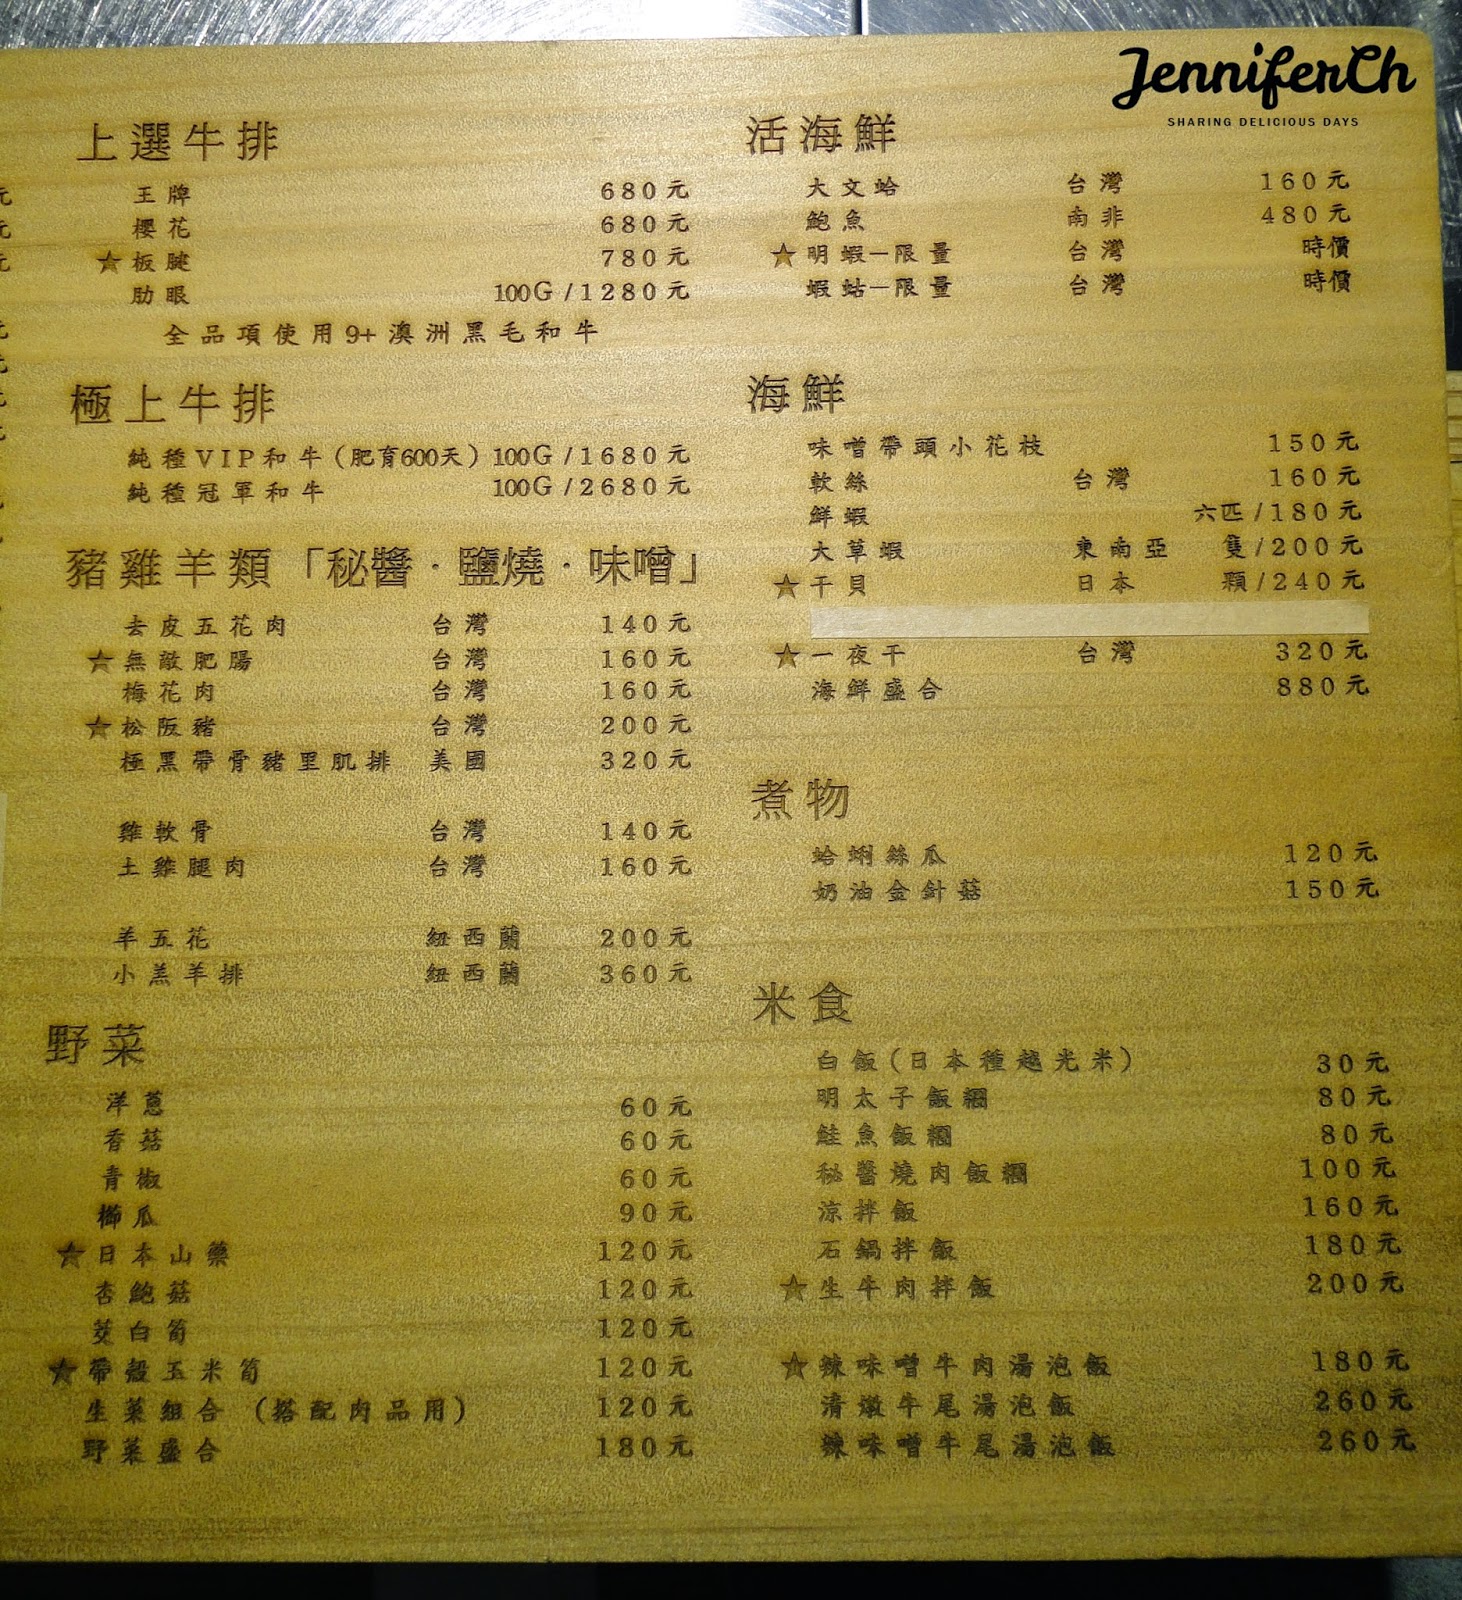 JenniferCh
SHARING DELICIOUS DAYS
上選牛排
王牌 680元
櫻花 680元
☆板腱 780元
肋眼 100G/1280元
全品項使用9+澳洲黑毛和牛
極上牛排
純種VIP和牛(肥育600天) 100G/1680元
純種冠軍和牛 100G/2680元
豬雞羊類「秘醬·鹽燒·味噌」
去皮五花肉 台灣 140元
☆無敵肥腸 台灣 160元
梅花肉 台灣 160元
☆松阪豬 台灣 200元
極黑帶骨豬里肌排 美國 320元
雞軟骨 台灣 140元
土雞腿肉 台灣 160元
羊五花 紐西蘭 200元
小羔羊排 紐西蘭 360元
野菜
洋蔥 60元
香菇 60元
青椒 60元
櫛瓜 90元
☆日本山藥 120元
杏鮑菇 120元
茭白筍 120元
☆帶殼玉米筍 120元
生菜組合 (搭配肉品用) 120元
野菜盛合 180元
活海鮮
大文蛤 台灣 160元
鮑魚 南非 480元
☆明蝦－限量 台灣 時價
蝦蛄－限量 台灣 時價
海鮮
味噌帶頭小花枝 150元
軟絲 台灣 160元
鮮蝦 六匹/180元
大草蝦 東南亞 隻/200元
☆干貝 日本 顆/240元
☆一夜干 台灣 320元
海鮮盛合 880元
煮物
蛤蜊絲瓜 120元
奶油金針菇 150元
米食
白飯(日本種越光米) 30元
明太子飯糰 80元
鮭魚飯糰 80元
秘醬燒肉飯糰 100元
涼拌飯 160元
石鍋拌飯 180元
☆生牛肉拌飯 200元
☆辣味噌牛肉湯泡飯 180元
清燉牛尾湯泡飯 260元
辣味噌牛尾湯泡飯 260元